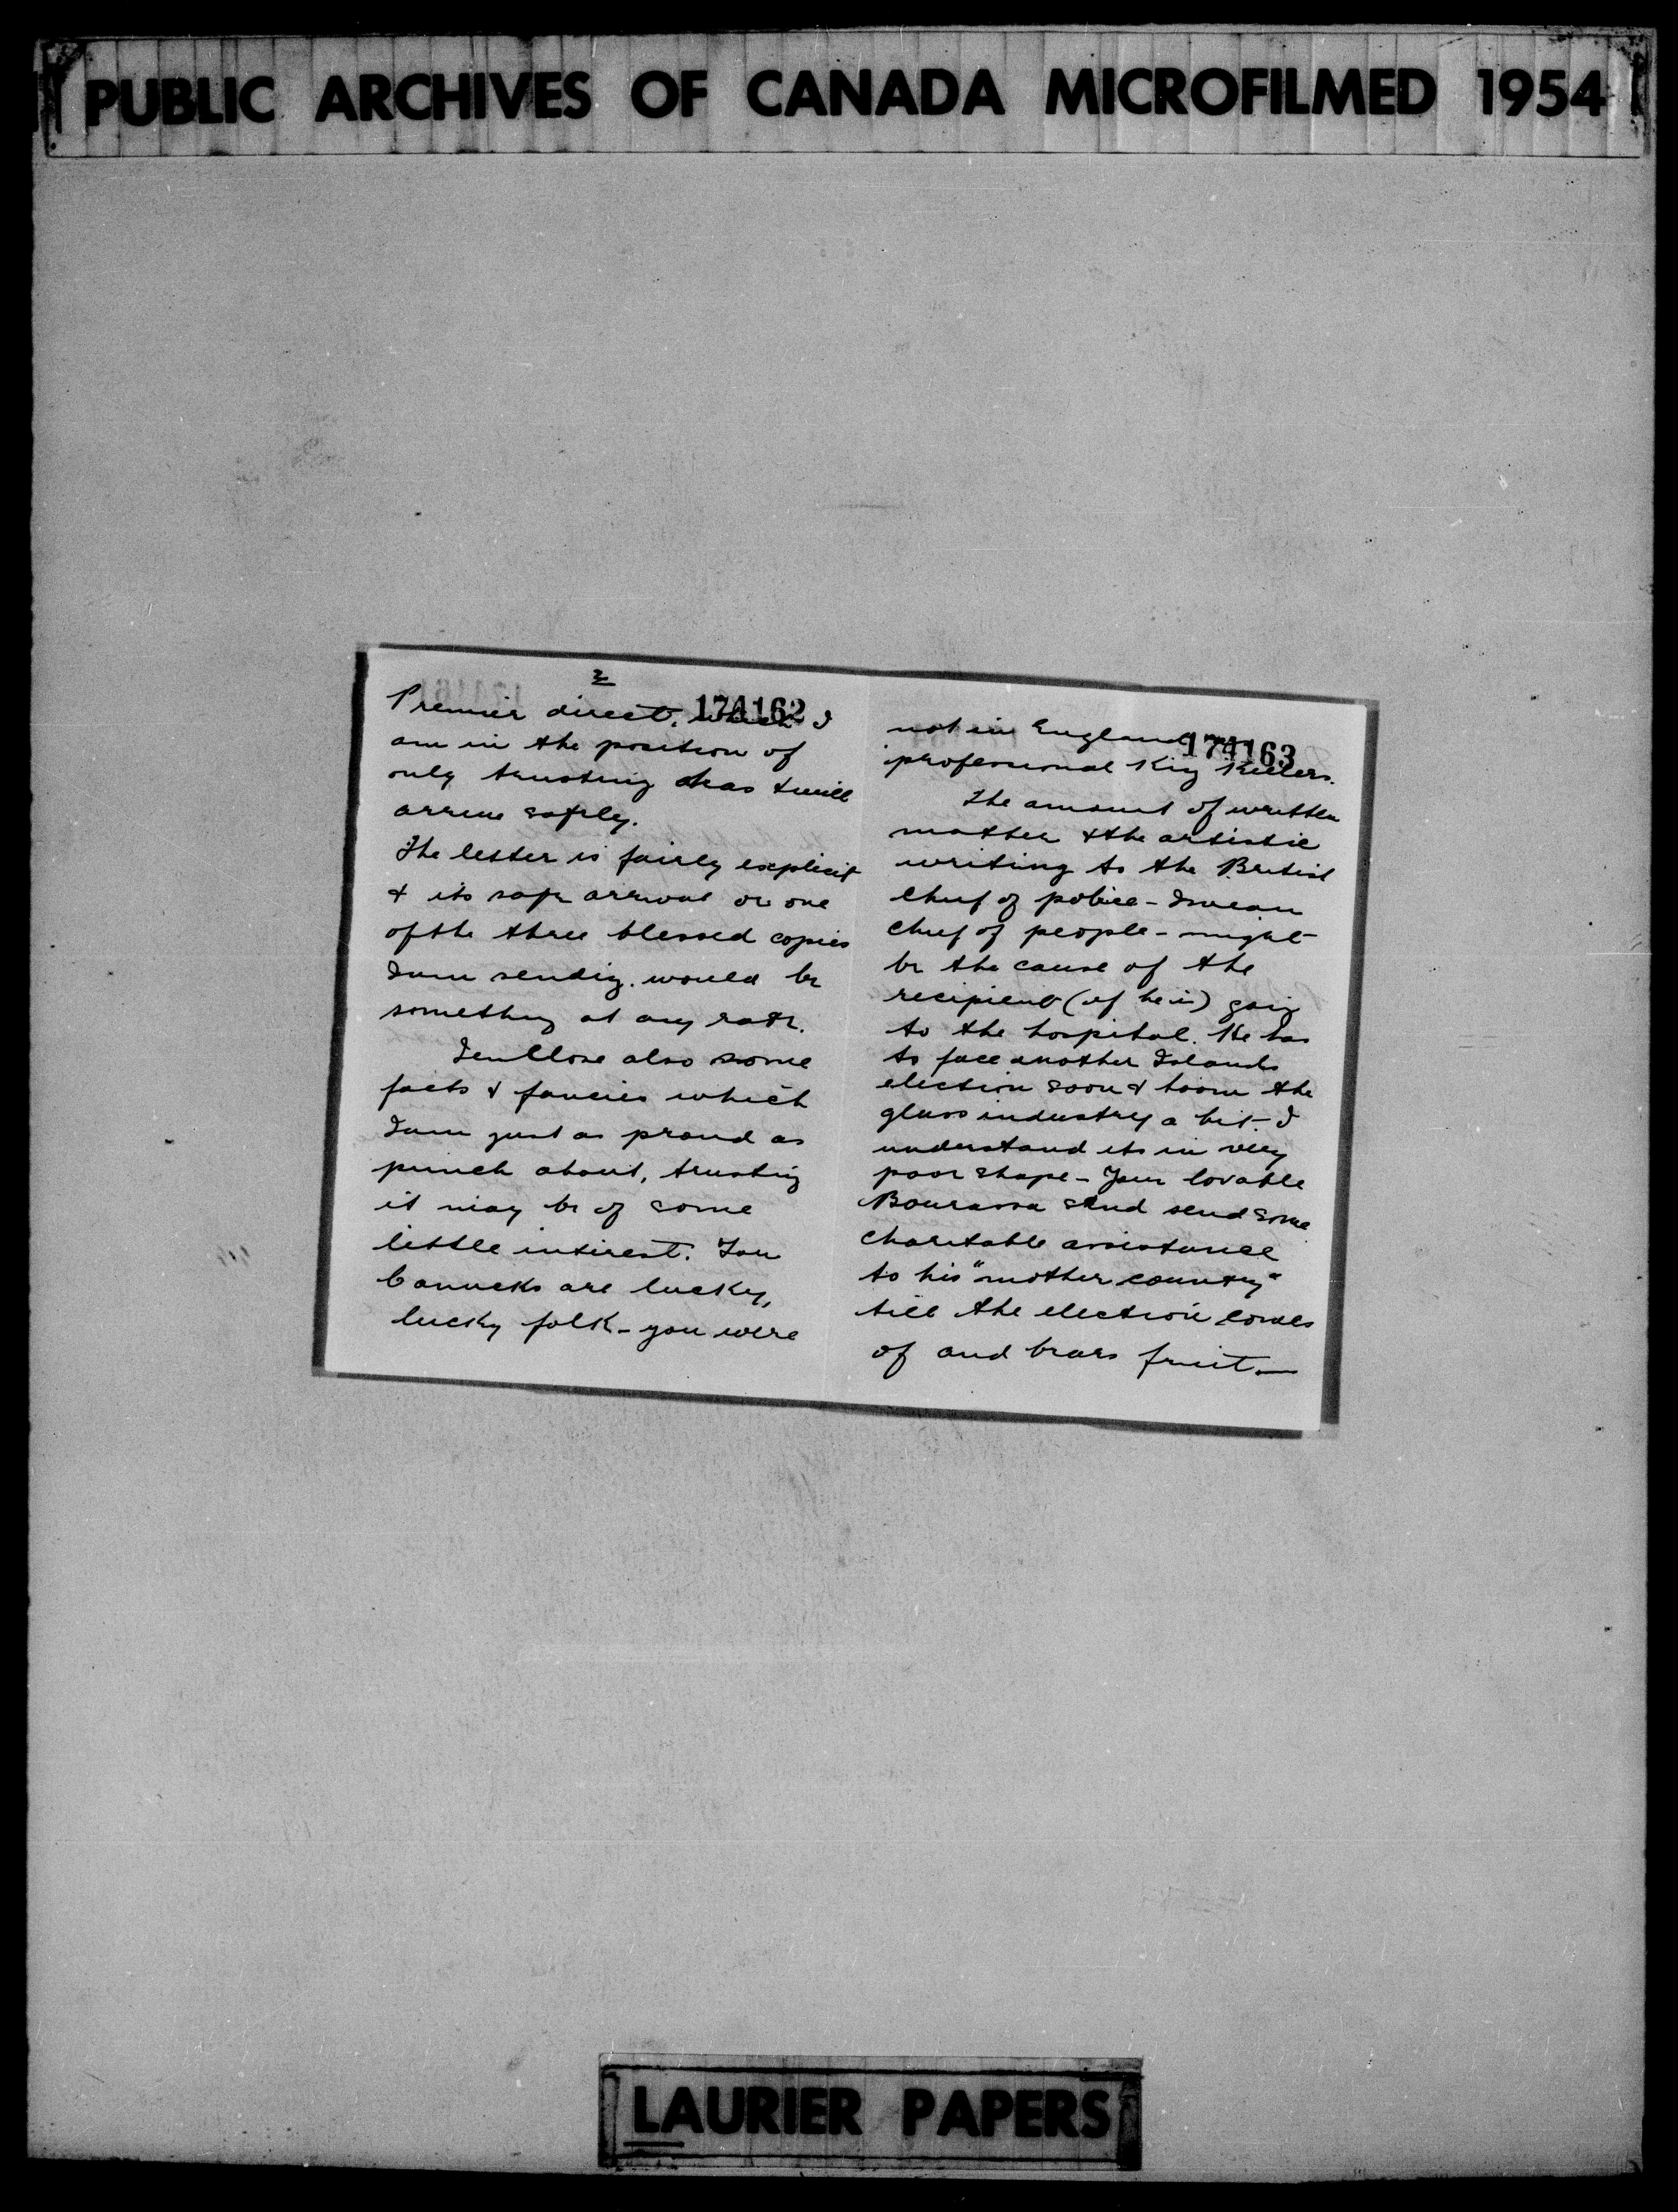 PUBLIC ARCHIVES OF CANADA MICROFILMED 1954
2
174162
Premier direct. which I
am in the position of
only trusting has & will
arrive safely.
The letter is fairly explicit
& its safe arrival or one
of the three blessed copies
I am sending. would be
something at any rate.
I enclose also some
facts & fancies which
I am just as proud as
punch about, trusting
it may be of some
little interest. You
Canucks are lucky,
lucky folk - you were
174163
not in England
professional King Killers.
The amount of written
matter & the artistic
writing to the British
chief of police - I mean
chief of people - might
be the cause of the
recipient (if he is) going
to the hospital. He has
to face another Islands
election soon & boom the
glass industry a bit - I
understand its in very
poor shape - Your lovable
Bourassa send some
charitable assistance
to his "mother country"
till the election comes
of and bears fruit. —
LAURIER PAPERS